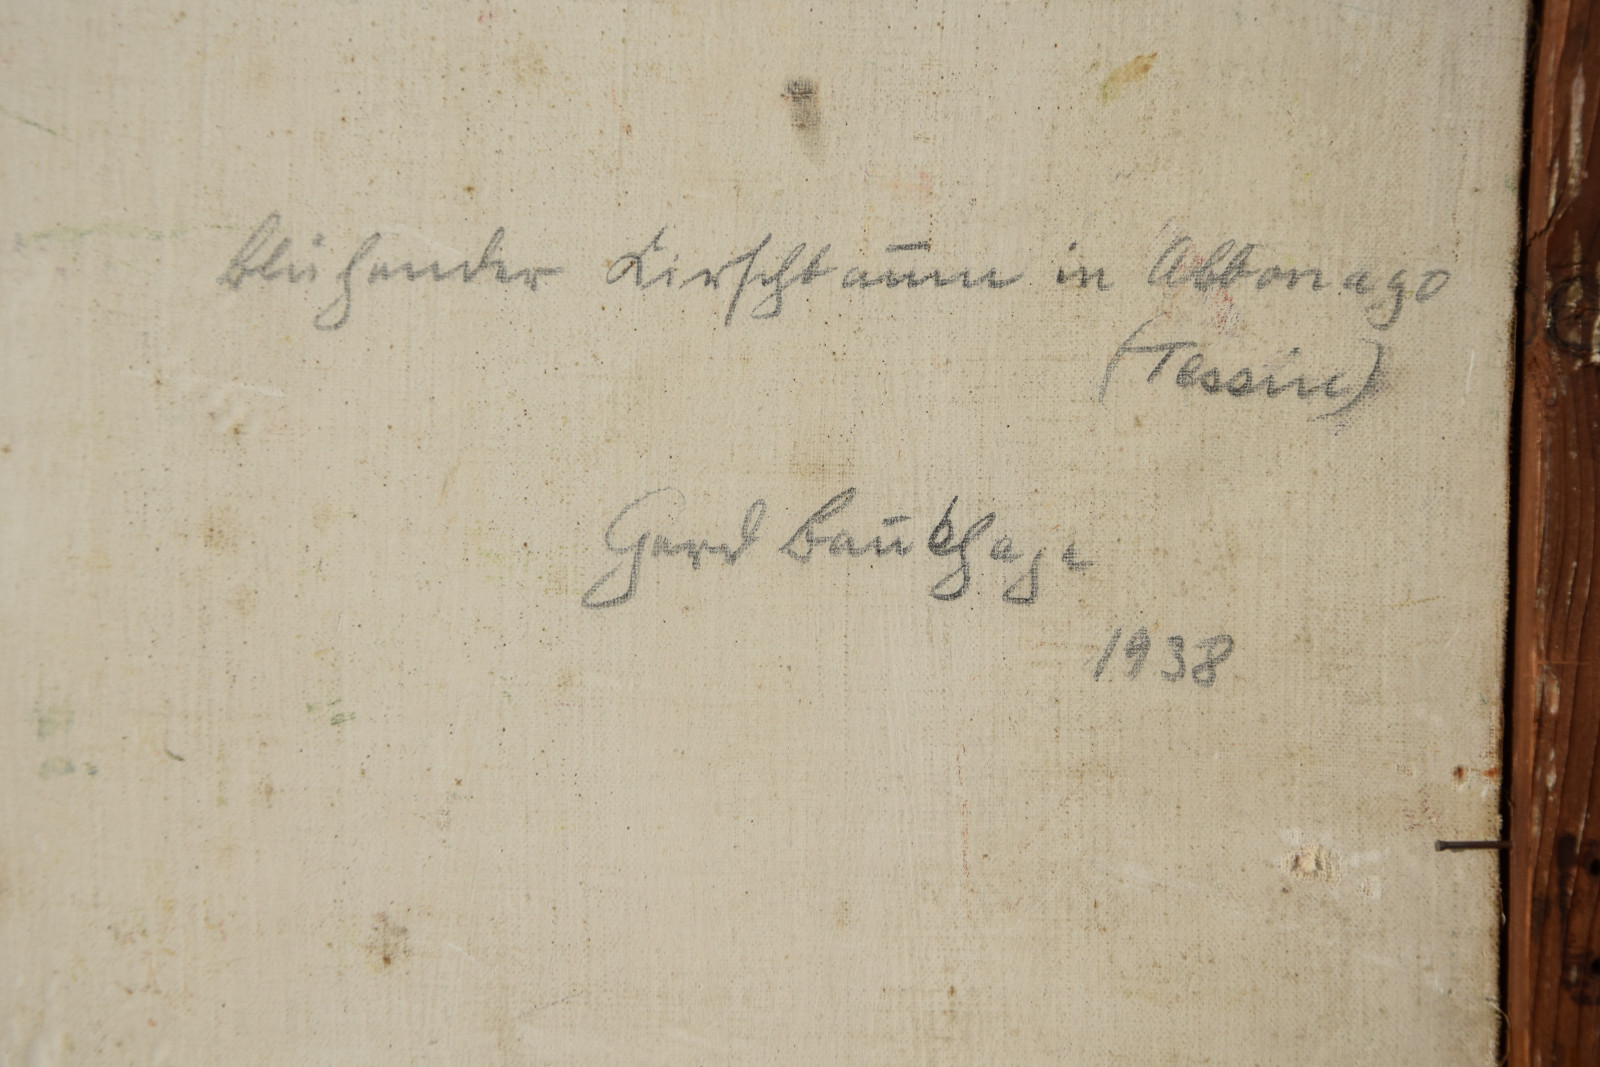 Blühender Kirschbaum in Albonago
(Tessin)
Gerd Baukhage
1938